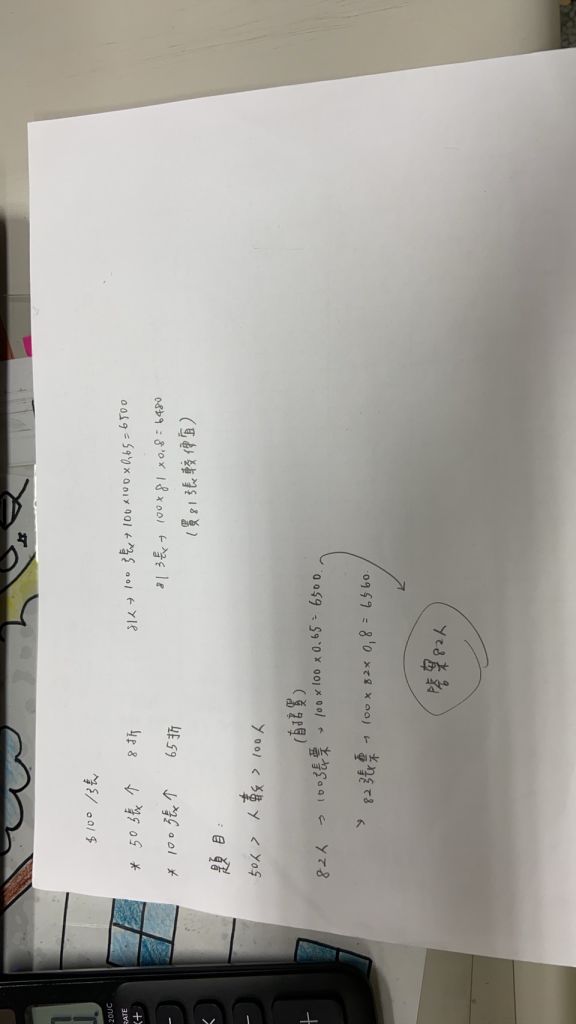 $100/張
* 50張↑ 8折
* 100張↑ 65折
題目:
50人 > 人數 > 100人
(直接買)
82人 → 100張票 → 100×100×0.65=6500
→ 82張票 → 100×82×0.8=6560
答案82人
81人→100張→100×100×0.65=6500
81張→100×81×0.8=6480
(買81張較便宜)